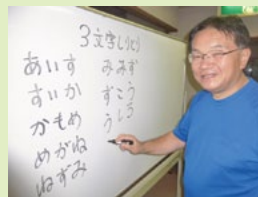 3文字しりとり
あいす
すいか
かもめ
めがね
ねずみ
みみず
ずこう
うしろ